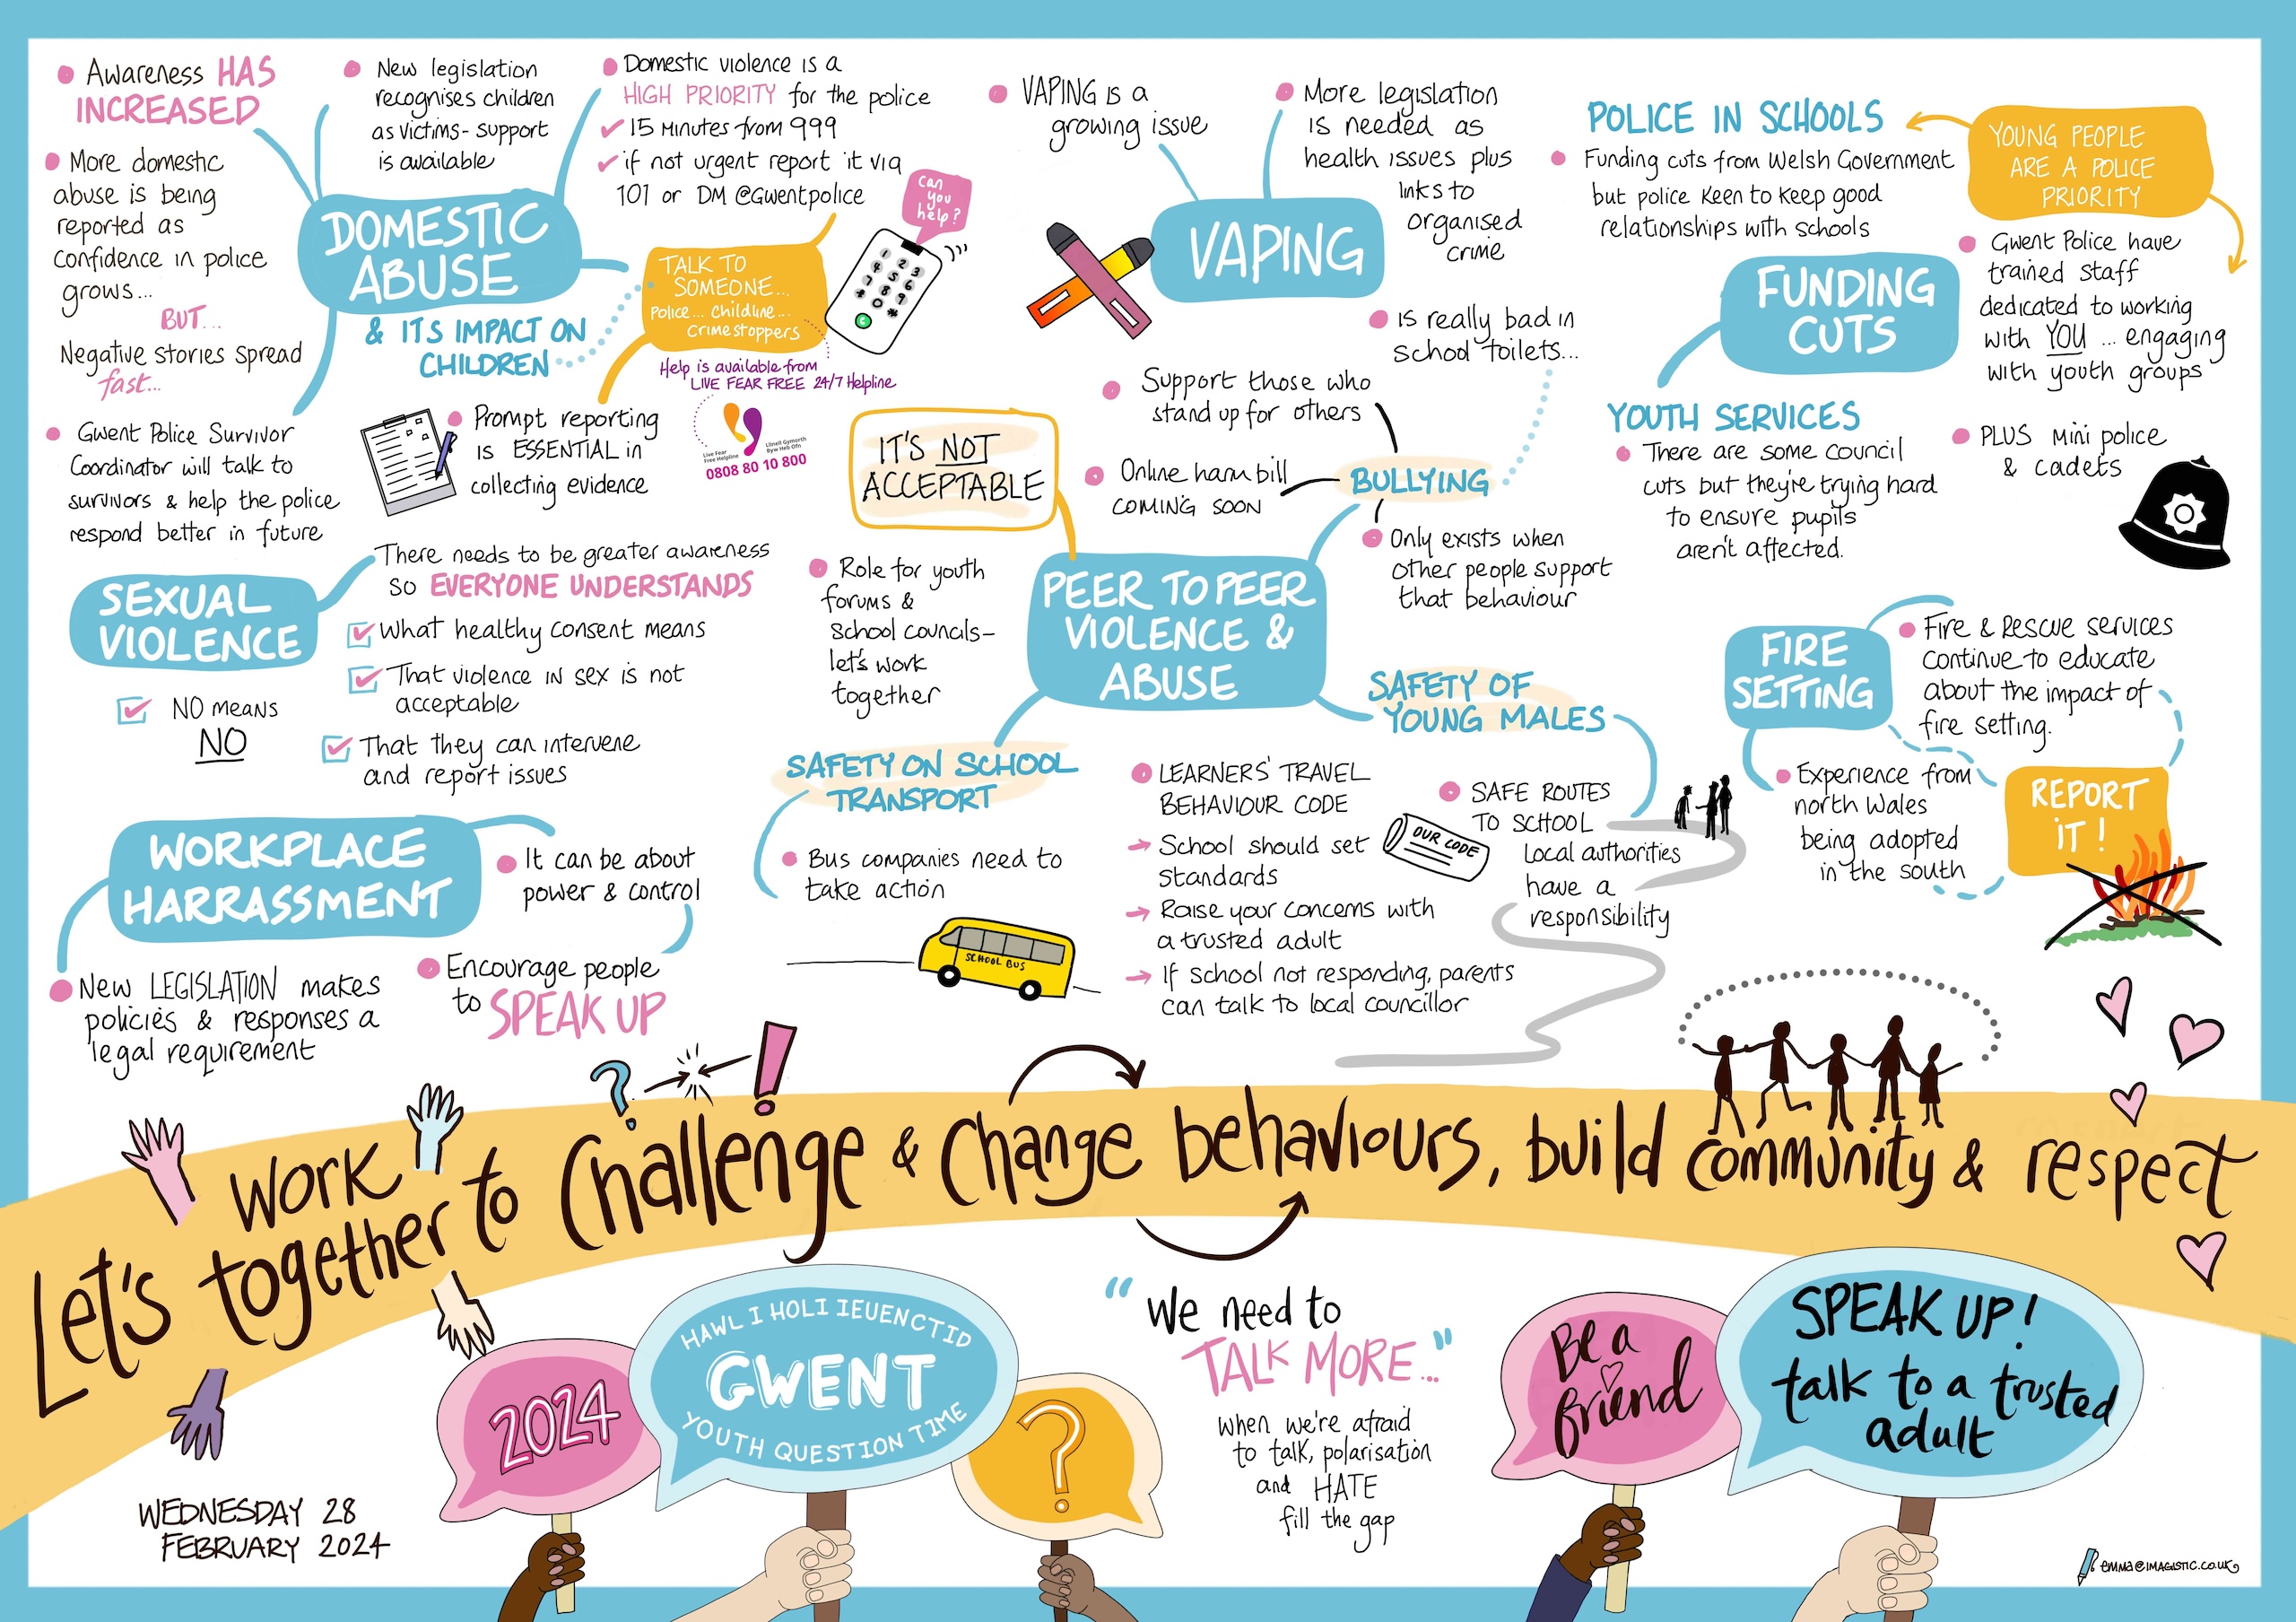 Awareness HAS
INCREASED
More domestic
abuse is being
reported as
confidence in police
grows...
BUT...
Negative stories spread
fast...
Gwent Police Survivor
Coordinator will talk to
survivors & help the police
respond better in future
New legislation
recognises children
as victims - support
is available
Domestic violence is a
HIGH PRIORITY for the police
15 minutes from 999
if not urgent report it via
101 or DM @Gwentpolice
DOMESTIC
ABUSE
& ITS IMPACT ON
CHILDREN
TALK TO
SOMEONE...
Police... Childline...
Crimestoppers
Can
you
help?
1 2 3
4 5 6
7 8 9
* 0 #
Help is available from
LIVE FEAR FREE 24/7 Helpline
Live Fear
Free Helpline
Llinell Gymorth
Byw Heb Ofn
0808 80 10 800
Prompt reporting
is ESSENTIAL in
collecting evidence
VAPING is a
growing issue
More legislation
is needed as
health issues plus
links to
organised
crime
VAPING
is really bad in
school toilets...
POLICE IN SCHOOLS
Funding cuts from Welsh Government
but police keen to keep good
relationships with schools
YOUNG PEOPLE
ARE A POLICE
PRIORITY
FUNDING
CUTS
Gwent Police have
trained staff
dedicated to working
with YOU ... engaging
with youth groups
PLUS mini police
& cadets
YOUTH SERVICES
There are some council
cuts but they're trying hard
to ensure pupils
aren't affected.
SEXUAL
VIOLENCE
There needs to be greater awareness
so EVERYONE UNDERSTANDS
What healthy consent means
That violence in sex is not
acceptable
That they can intervene
and report issues
NO means
NO
IT'S NOT
ACCEPTABLE
Support those who
stand up for others
Online harm bill
COMING SOON
BULLYING
Only exists when
other people support
that behaviour
Role for youth
forums &
school councils -
let's work
together
PEER TO PEER
VIOLENCE &
ABUSE
SAFETY OF
YOUNG MALES
SAFE ROUTES
TO SCHOOL
Local authorities
have a
responsibility
SAFETY ON SCHOOL
TRANSPORT
Bus companies need to
take action
SCHOOL BUS
LEARNERS' TRAVEL
BEHAVIOUR CODE
School should set
standards
Raise your concerns with
a trusted adult
If school not responding, parents
can talk to local councillor
OUR CODE
FIRE
SETTING
Fire & Rescue services
continue to educate
about the impact of
fire setting.
Experience from
north Wales
being adopted
in the south
REPORT
IT!
WORKPLACE
HARRASSMENT
It can be about
power & control
Encourage people
to SPEAK UP
New LEGISLATION makes
policies & responses a
legal requirement
? !
Let's work together to challenge & change behaviours, build community & respect
WEDNESDAY 28
FEBRUARY 2024
2024
HAWL I HOLI IEUENCTID
GWENT
YOUTH QUESTION TIME
?
"We need to
TALK MORE..."
when we're afraid
to talk, polarisation
and HATE
fill the gap
Be a
friend
SPEAK UP!
talk to a trusted
adult
emma@imagistic.co.uk